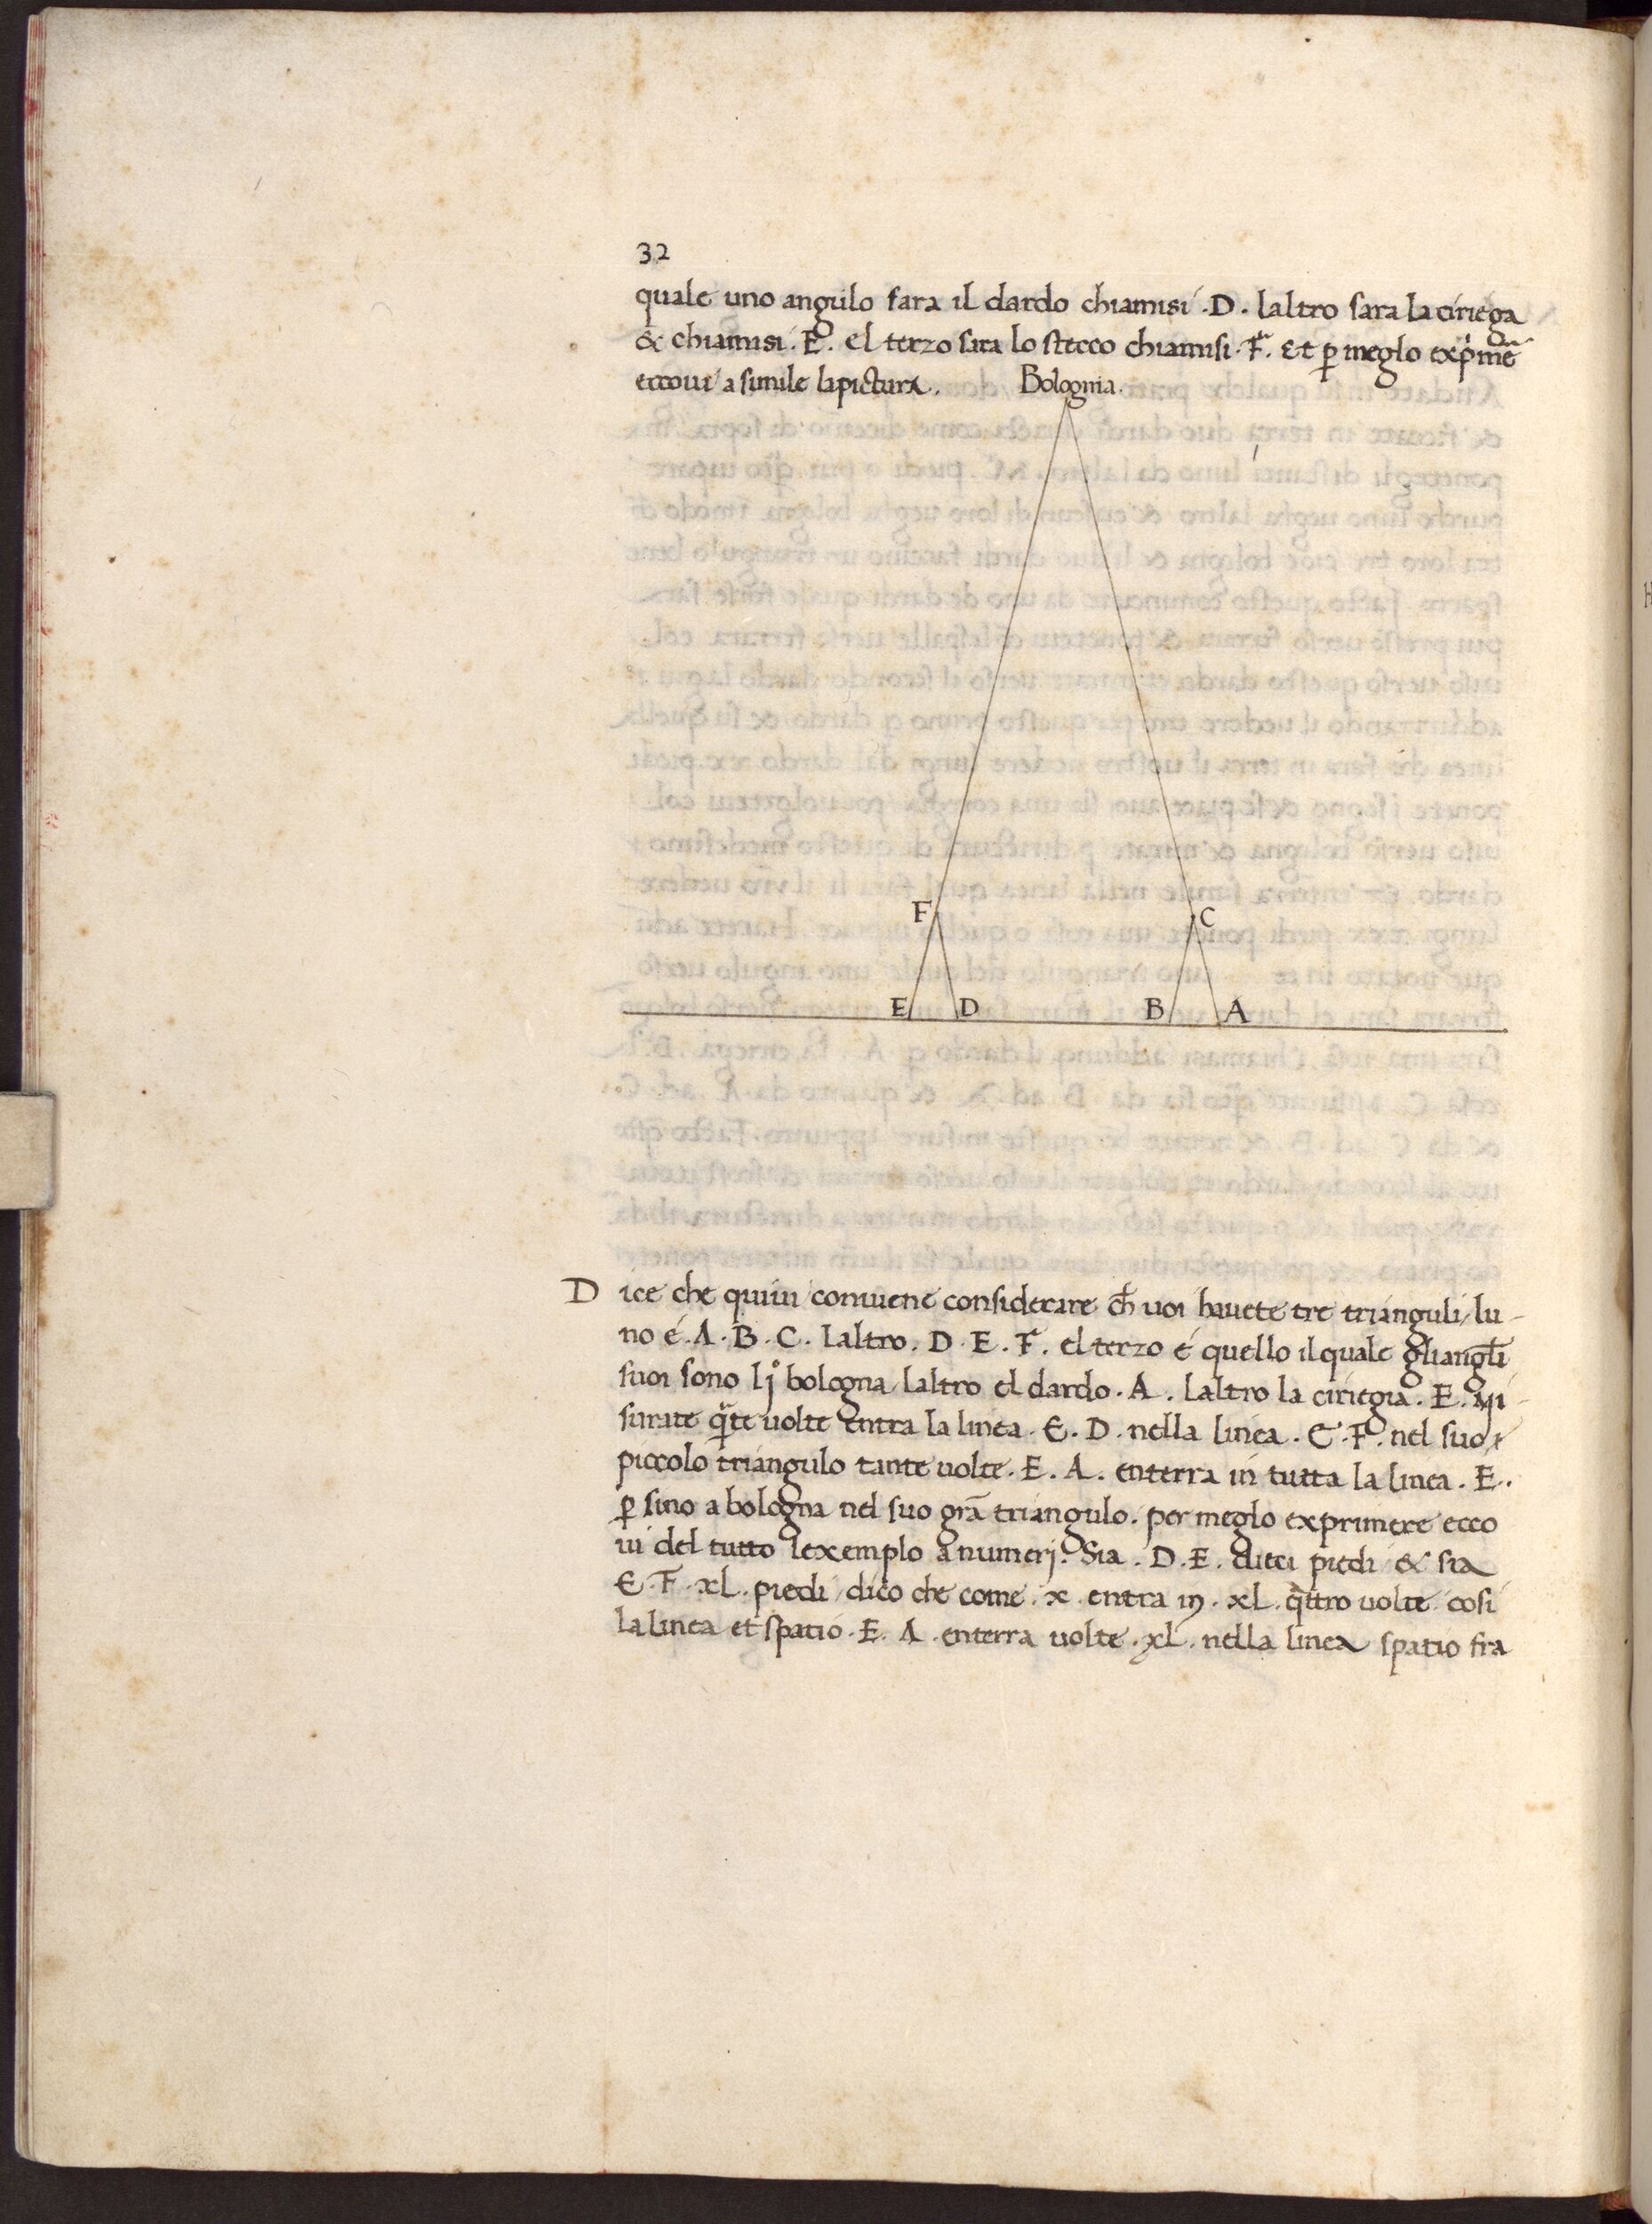 32
quale uno angulo fara il dardo chiamisi .D. laltro sara la ciriega
& chiamisi .E. el terzo sara lo stecco chiamisi .F. Et p̱ meglo exp̍mē
eccoui a simile lapictura. Bolognia.
F C
E D B A
D ice che quiui conuiene considerare ch̄ uoi hauete tre trianguli / lu-
no é .A.B.C. laltro .D.E.F. el terzo é quello ilquale gliangl̄i
suoi sono lj° bologna / laltro el dardo .A. laltro la ciriegia .E. Mi-
surate q̄te uolte entra la linea .E.D. nella linea .E.F. nel suo
piccolo triangulo tante uolte .E.A. enterra in tutta la linea .E..
p̱ sino a bologna nel suo grā triangulo. per meglo exprimere ecco
ui del tutto lexemplo a numerj. Sia .D.E. dieci piedi & sia
E.F. xl. piedi / dico che come .x. entra in .xl. q̄ttro uolte cosi
lalinea et spatio .E.A. enterra uolte .xl. nella linea spatio fra